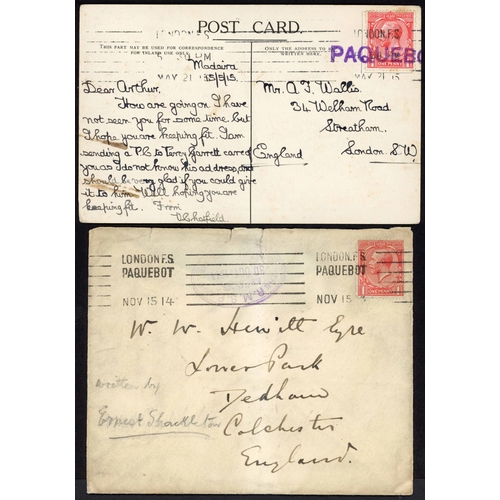 LONDON.F.S.
POST CARD.
THIS PART MAY BE USED FOR CORRESPONDENCE
FOR INLAND USE ONLY.
PAQUEBOT
MAY 21 15
Madeira
15/5/15.
Dear Arthur.
How are going on I have
not seen you for some time but
I hope you are keeping fit. I am
sending a P.C to Percy Garrett care of
you as I do not know his address, and
should be very glad if you could give
it to him. Well hoping you are
keeping fit. From
LONDON.F.S.
PAQUEBOT
ONE PENNY
Mr. A F. Wallis.
34 Welham Road
Streatham.
England London. S.W.
LONDON.F.S.
PAQUEBOT
NOV 15 14
LONDON.F.S.
PAQUEBOT
NOV 15 14
R.M.S.
1
ONE PENNY
W. W. Hewitt Eyre
Lower Park
Dedham
Colchester
England.
written by
Ernest Shackleton